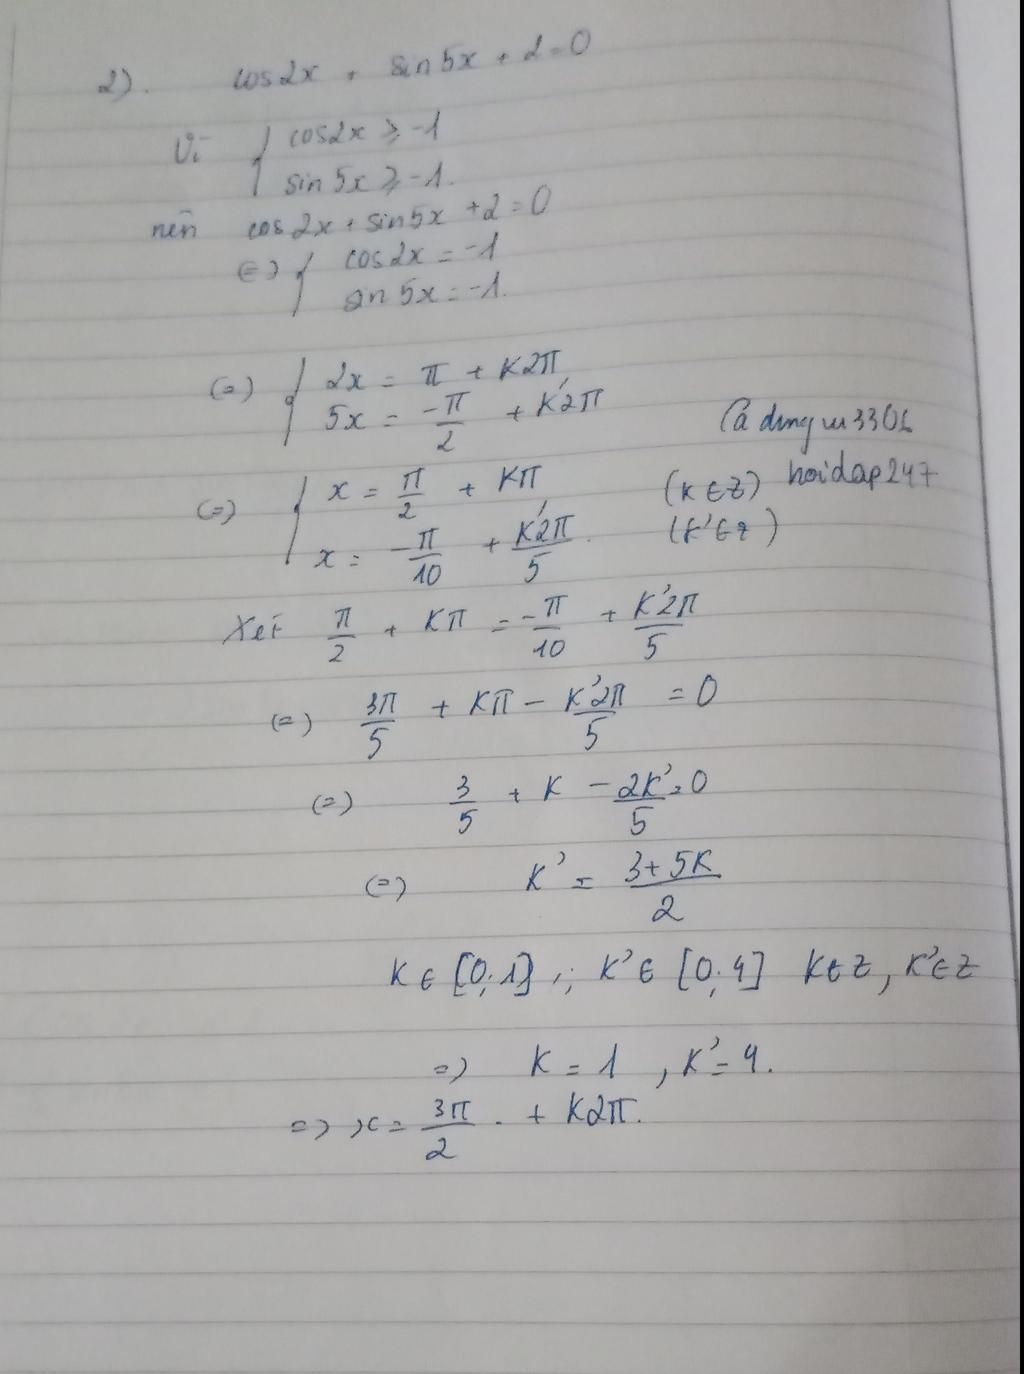 2). cos2x + sin5x + 2 = 0
Vì { cos2x ≥ -1
sin5x ≥ -1.
nên cos2x + sin5x + 2 = 0
(=) { cos2x = -1
sin5x = -1.
(=) { 2x = π + K2π
5x = -π/2 + K'2π
Cá dmg
(=) { x = π/2 + Kπ (K ∈ Z) hoidap247
x = -π/10 + K'2π/5. (K' ∈ Z)
Xét π/2 + Kπ = -π/10 + K'2π/5
(=) 3π/5 + Kπ - K'2π/5 = 0
(=) 3/5 + K - 2K'/5 = 0
(=) K' = (3+5K)/2
K ∈ [0;1] ; K' ∈ [0;4] K ∈ Z, K' ∈ Z
=) K = 1, K' = 4.
=) x = 3π/2 + K2π.